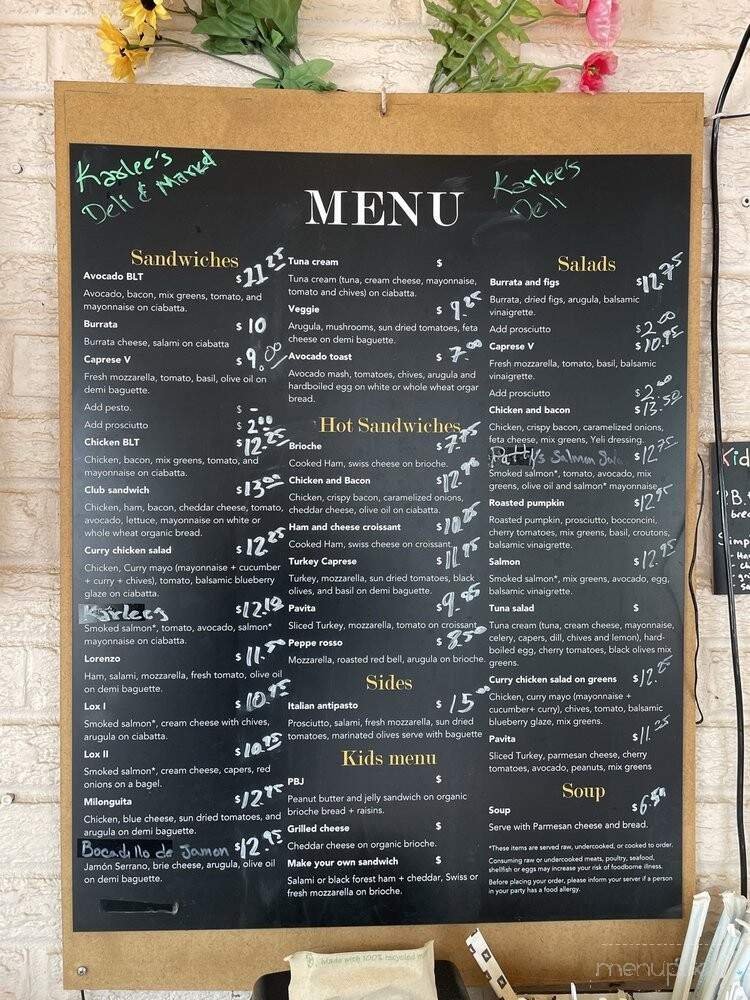 Karlee's
Deli & Market
Karlee's
Deli
MENU
Sandwiches
Avocado BLT $11.25
Avocado, bacon, mix greens, tomato, and
mayonnaise on ciabatta.
Burrata $10
Burrata cheese, salami on ciabatta
Caprese V $9.00
Fresh mozzarella, tomato, basil, olive oil on
demi baguette.
Add pesto. $ -
Add prosciutto $2.00
Chicken BLT $12.25
Chicken, bacon, mix greens, tomato, and
mayonnaise on ciabatta.
Club sandwich $13.00
Chicken, ham, bacon, cheddar cheese, tomato,
avocado, lettuce, mayonnaise on white or
whole wheat organic bread.
Curry chicken salad $12.25
Chicken, Curry mayo (mayonnaise + cucumber
+ curry + chives), tomato, balsamic blueberry
glaze on ciabatta.
Karlee's
Smoked salmon*, tomato, avocado, salmon*
mayonnaise on ciabatta.
Lorenzo $11.50
Ham, salami, mozzarella, fresh tomato, olive oil
on demi baguette.
Lox I $10.95
Smoked salmon*, cream cheese with chives,
arugula on ciabatta.
Lox II $10.95
Smoked salmon*, cream cheese, capers, red
onions on a bagel.
Milonguita $12.95
Chicken, blue cheese, sun dried tomatoes, and
arugula on demi baguette.
Bocadillo de Jamon $12.95
Jamón Serrano, brie cheese, arugula, olive oil
on demi baguette.
Tuna cream $
Tuna cream (tuna, cream cheese, mayonnaise,
tomato and chives) on ciabatta.
Veggie $9.25
Arugula, mushrooms, sun dried tomatoes, feta
cheese on demi baguette.
Avocado toast $7.00
Avocado mash, tomatoes, chives, arugula and
hardboiled egg on white or whole wheat orgar
bread.
Hot Sandwiches
Brioche $7.75
Cooked Ham, swiss cheese on brioche.
Chicken and Bacon
Chicken, crispy bacon, caramelized onions,
cheddar cheese, olive oil on ciabatta.
Ham and cheese croissant $10.25
Cooked Ham, swiss cheese on croissant.
Turkey Caprese $11.95
Turkey, mozzarella, sun dried tomatoes, black
olives, and basil on demi baguette.
Pavita $9.85
Sliced Turkey, mozzarella, tomato on croissant.
Peppe rosso $8.50
Mozzarella, roasted red bell, arugula on brioche.
Sides
Italian antipasto $15.00
Prosciutto, salami, fresh mozzarella, sun dried
tomatoes, marinated olives serve with baguette
Kids menu
PBJ $
Peanut butter and jelly sandwich on organic
brioche bread + raisins.
Grilled cheese $
Cheddar cheese on organic brioche.
Make your own sandwich $
Salami or black forest ham + cheddar, Swiss or
fresh mozzarella on brioche.
Salads
Burrata and figs $12.75
Burrata, dried figs, arugula, balsamic
vinaigrette.
Add prosciutto $2.00
Caprese V $10.95
Fresh mozzarella, tomato, basil, balsamic
vinaigrette.
Add prosciutto $2.00
Chicken and bacon $13.50
Chicken, crispy bacon, caramelized onions,
feta cheese, mix greens, Yeli dressing.
Patty's Salmon $12.95
Smoked salmon*, tomato, avocado, mix
greens, olive oil and salmon* mayonnaise.
Roasted pumpkin $12.95
Roasted pumpkin, prosciutto, bocconcini,
cherry tomatoes, mix greens, basil, croutons,
balsamic vinaigrette.
Salmon $12.95
Smoked salmon*, mix greens, avocado, egg,
balsamic vinaigrette.
Tuna salad $
Tuna cream (tuna, cream cheese, mayonnaise,
celery, capers, dill, chives and lemon), hard-
boiled egg, cherry tomatoes, black olives mix
greens.
Curry chicken salad on greens
Chicken, curry mayo (mayonnaise +
cucumber+ curry), chives, tomato, balsamic
blueberry glaze, mix greens.
Pavita $11.25
Sliced Turkey, parmesan cheese, cherry
tomatoes, avocado, peanuts, mix greens
Soup
Soup $6.50
Serve with Parmesan cheese and bread.
*These items are served raw, undercooked, or cooked to order.
Consuming raw or undercooked meats, poultry, seafood,
shellfish or eggs may increase your risk of foodborne illness.
Before placing your order, please inform your server if a person
in your party has a food allergy.
Kid
PB
brea
Simp
Made with 100% recycled